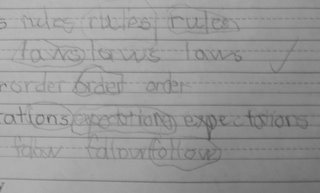 s rules rules rules
laws laws laws
order order order
ations expectations expectations
follow